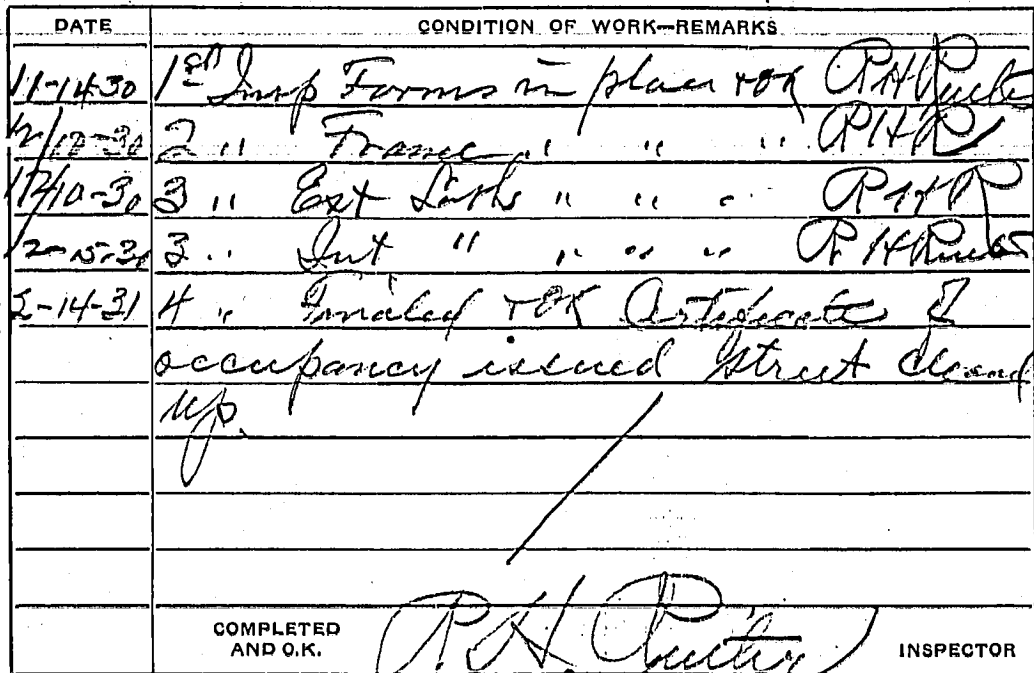 DATE CONDITION OF WORK—REMARKS
11-14-30 1st Insp Forms in place + OK R H
12/10-30 2 " Frame " " " RHR
12/10-30 3 " Ext Laths " " " RHR
12-15-30 3 " Int " " " " R H
2-14-31 4 " Finaled + OK Certificate of
occupancy issued Street cleaned
up.
COMPLETED
AND O.K. R. H. INSPECTOR